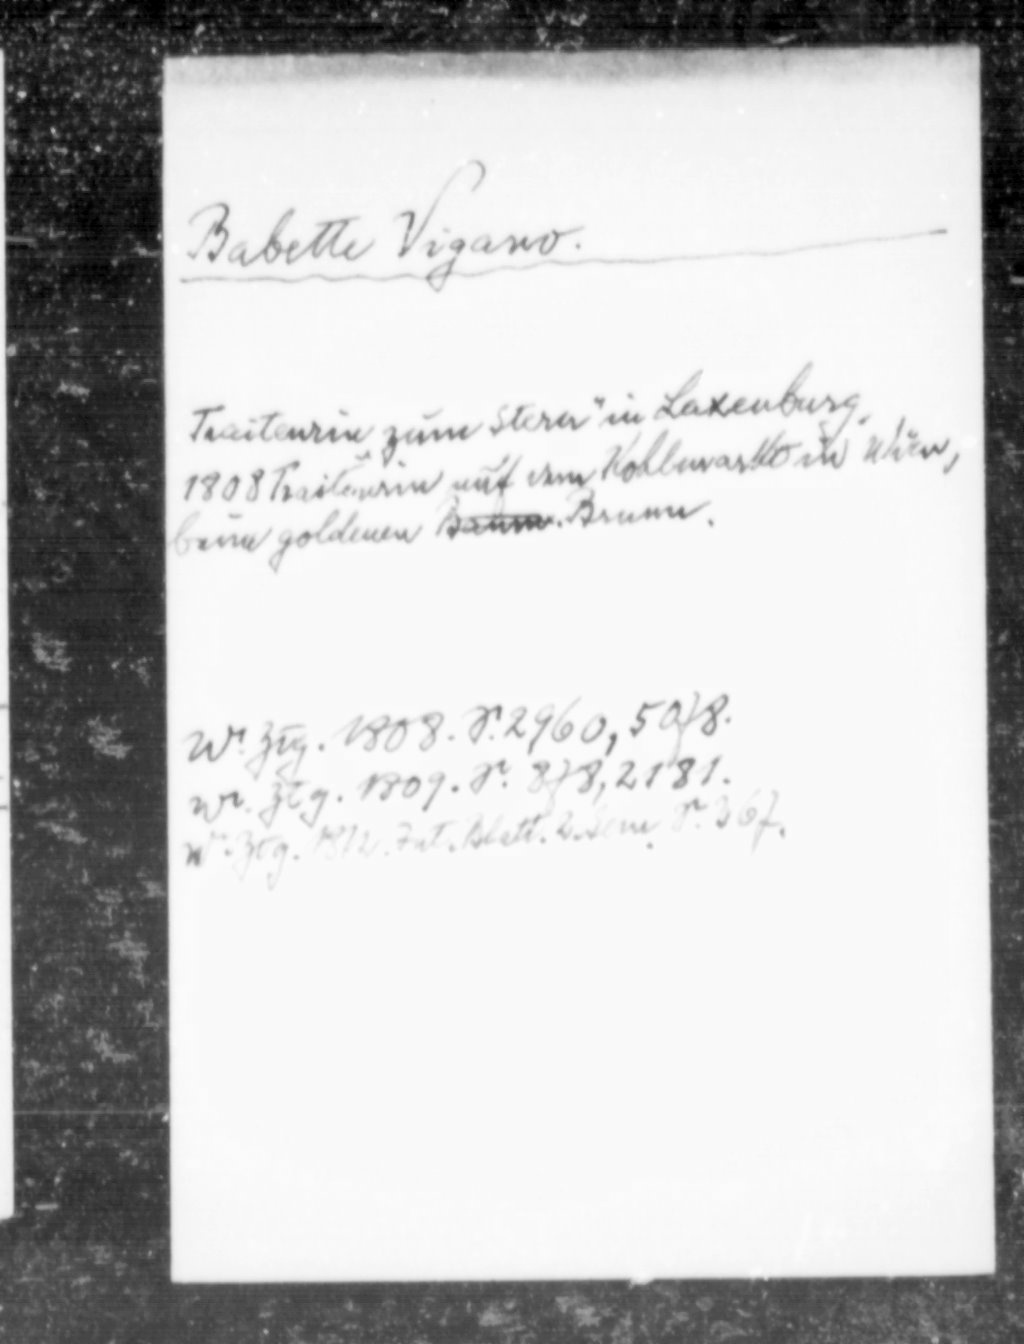 Babette Vigano.
Traiteurin zum Stern" in Laxenburg,
1808 Traiteurin auf dem Kohlmarkt in Wien,
beim goldenen Baum. Brunn.
Wr. Ztg. 1808. S. 2960, 5078.
Wr. Ztg. 1809. S. 878, 2181.
Wr. Ztg. 1812. Int. Blatt. 2. Sem. S. 367.